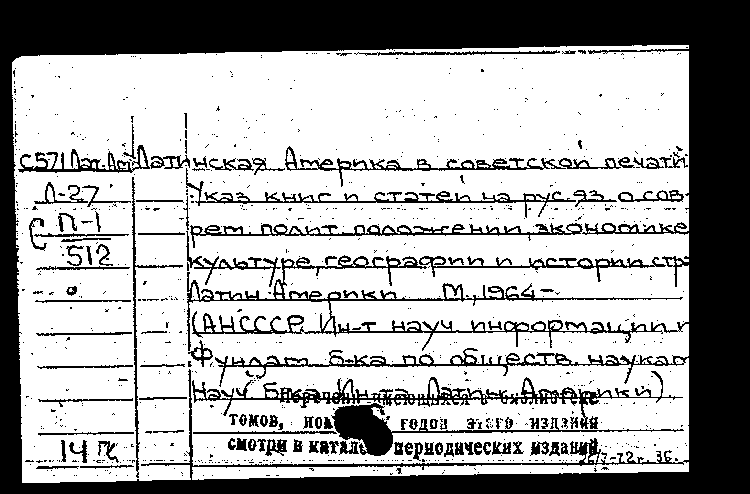 С571Лат.Ам Латинская Америка в советской печати
Л-27 Указ книг и статей на рус.яз. о сов-
П-1 рем. полит. положении, экономике
512 культуре, географии и истории стра
Латин. Америки. М., 1964-
(АНСССР. Ин-т науч. информации и
Фундам. б-ка по обществ. наукам
Науч. б-ка Ин-та Латин. Америки).
Перечень имеющихся в библиотеке
томов, годов этого издания
смотри в периодических изданий.
14 ГК